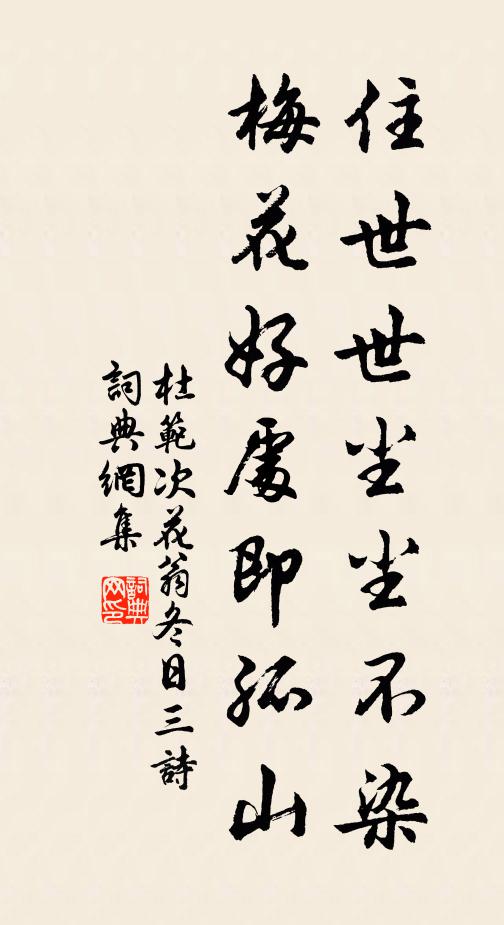 住世世尘尘不染
梅花好處即孤山
杜範次花翁冬日三詩
詞典網集
詞典網印